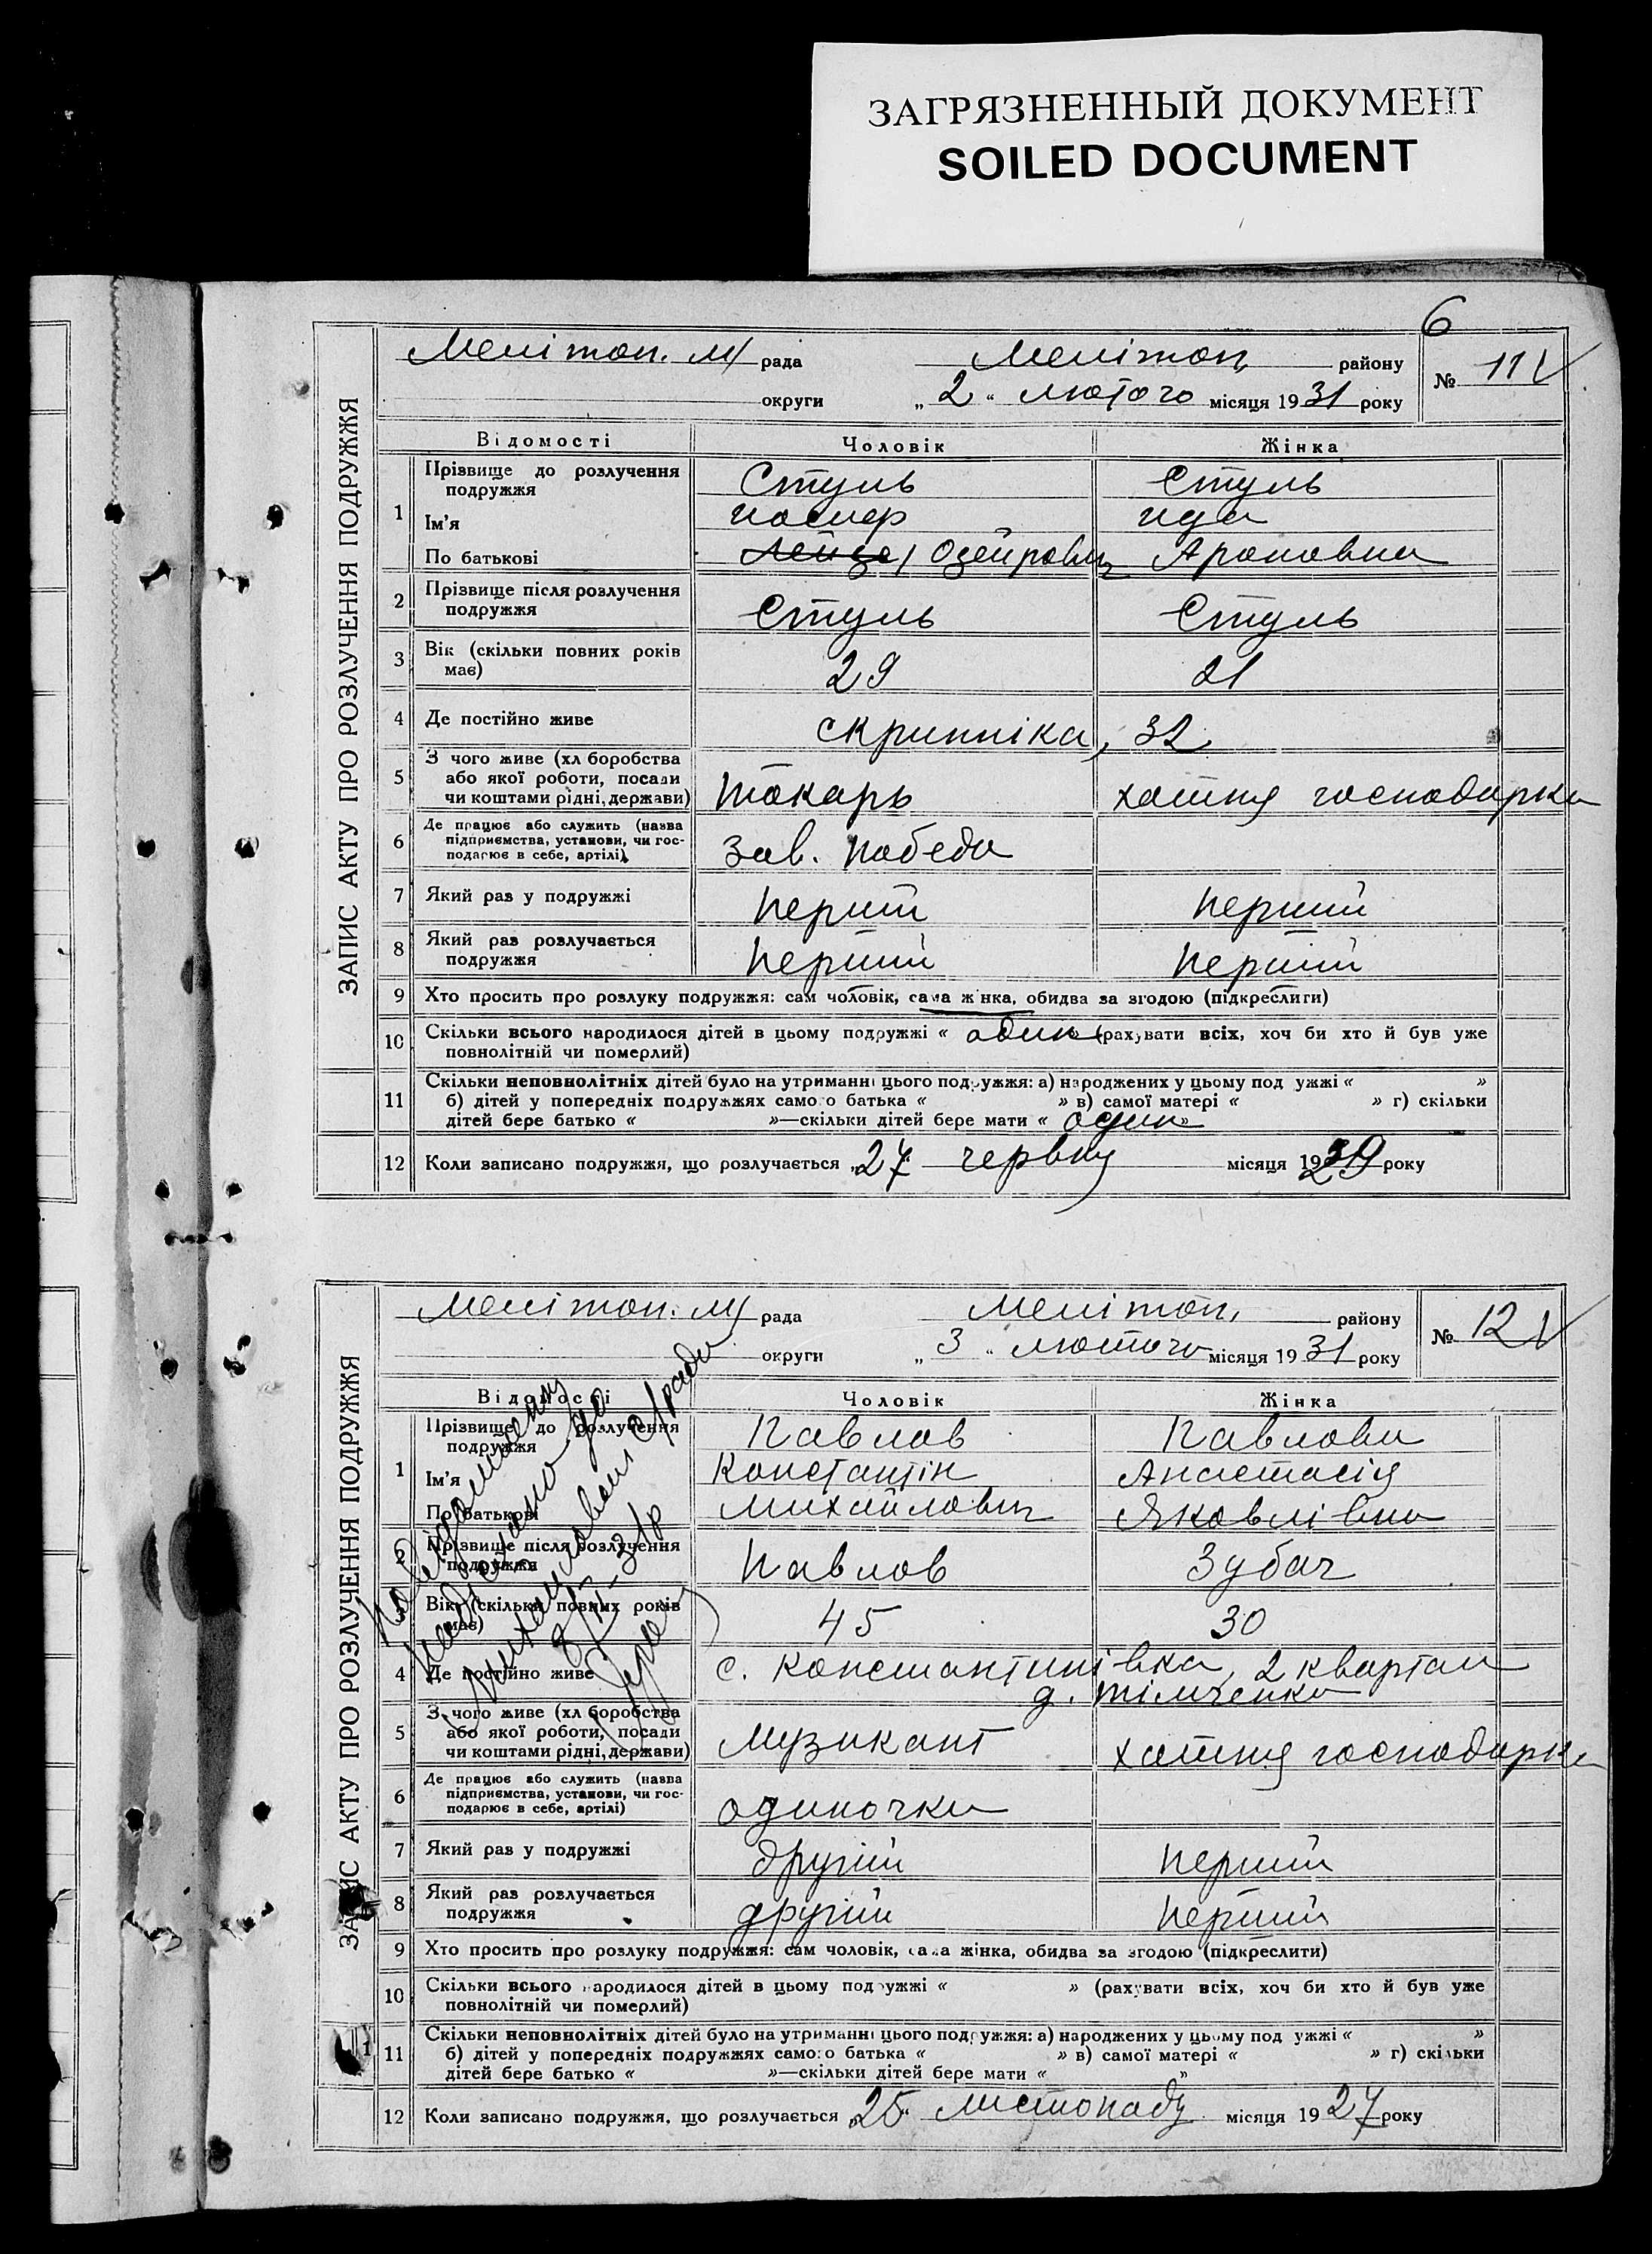 ЗАГРЯЗНЕННЫЙ ДОКУМЕНТ
SOILED DOCUMENT
6
ЗАПИС АКТУ ПРО РОЗЛУЧЕННЯ ПОДРУЖЖЯ
Мелітоп. м/ рада Мелітоп. району № 11
округи „2“ лютого місяця 1931 року
Відомості Чоловік Жінка
1 Прізвище до розлучення подружжя Стуль Стуль
Ім'я Ида
По батькові Озейрович Ароновна
2 Прізвище після розлучення
подружжя Стуль Стуль
3 Вік (скільки повних років
має) 29 21
4 Де постійно живе Скрипніка, 32
5 З чого живе (хл боробства
або якої роботи, посади
чи коштами рідні, держави) токарь хатня господарка
6 Де працює або служить (назва
підприємства, установи, чи гос-
подарює в себе, артілі) зав. победа
7 Який раз у подружжі перший перший
8 Який раз розлучається
подружжя перший перший
9 Хто просить про розлуку подружжя: сам чоловік, сама жінка, обидва за згодою (підкреслити)
10 Скільки всього народилося дітей в цьому подружжі « один » (рахувати всіх, хоч би хто й був уже
повнолітній чи померлий)
11 Скільки неповнолітніх дітей було на утриманні цього подружжя: а) народжених у цьому под ужжі « »
б) дітей у попередніх подружжях самого батька « » в) самої матері « » г) скільки
дітей бере батько « »—скільки дітей бере мати « один »
12 Коли записано подружжя, що розлучається „27“ червня місяця 1929 року
ЗАПИС АКТУ ПРО РОЗЛУЧЕННЯ ПОДРУЖЖЯ
Мелітоп. м/ рада Мелітоп. району № 12
округи „3“ лютого місяця 1931 року
Відомості Чоловік Жінка
1 Прізвище до розлучення
подружжя Павлов Павлова
Ім'я Константін Анастасія
По батькові Михайлович Яковлівна
2 Прізвище після розлучення
подружжя Павлов Зубач
3 Вік (скільки повних років
має) 45 30
4 Де постійно живе с. Константинівка, 2 квартал
д. Тімченко
5 З чого живе (хл боробства
або якої роботи, посади
чи коштами рідні, держави) музикант хатня господарка
6 Де працює або служить (назва
підприємства, установи, чи гос-
подарює в себе, артілі) одиночка
7 Який раз у подружжі другий перший
8 Який раз розлучається
подружжя другий перший
9 Хто просить про розлуку подружжя: сам чоловік, сама жінка, обидва за згодою (підкреслити)
10 Скільки всього народилося дітей в цьому подружжі « » (рахувати всіх, хоч би хто й був уже
повнолітній чи померлий)
11 Скільки неповнолітніх дітей було на утриманні цього подружжя: а) народжених у цьому под ужжі « »
б) дітей у попередніх подружжях самого батька « » в) самої матері « » г) скільки
дітей бере батько « »—скільки дітей бере мати « »
12 Коли записано подружжя, що розлучається „25“ листопаду місяця 1927 року